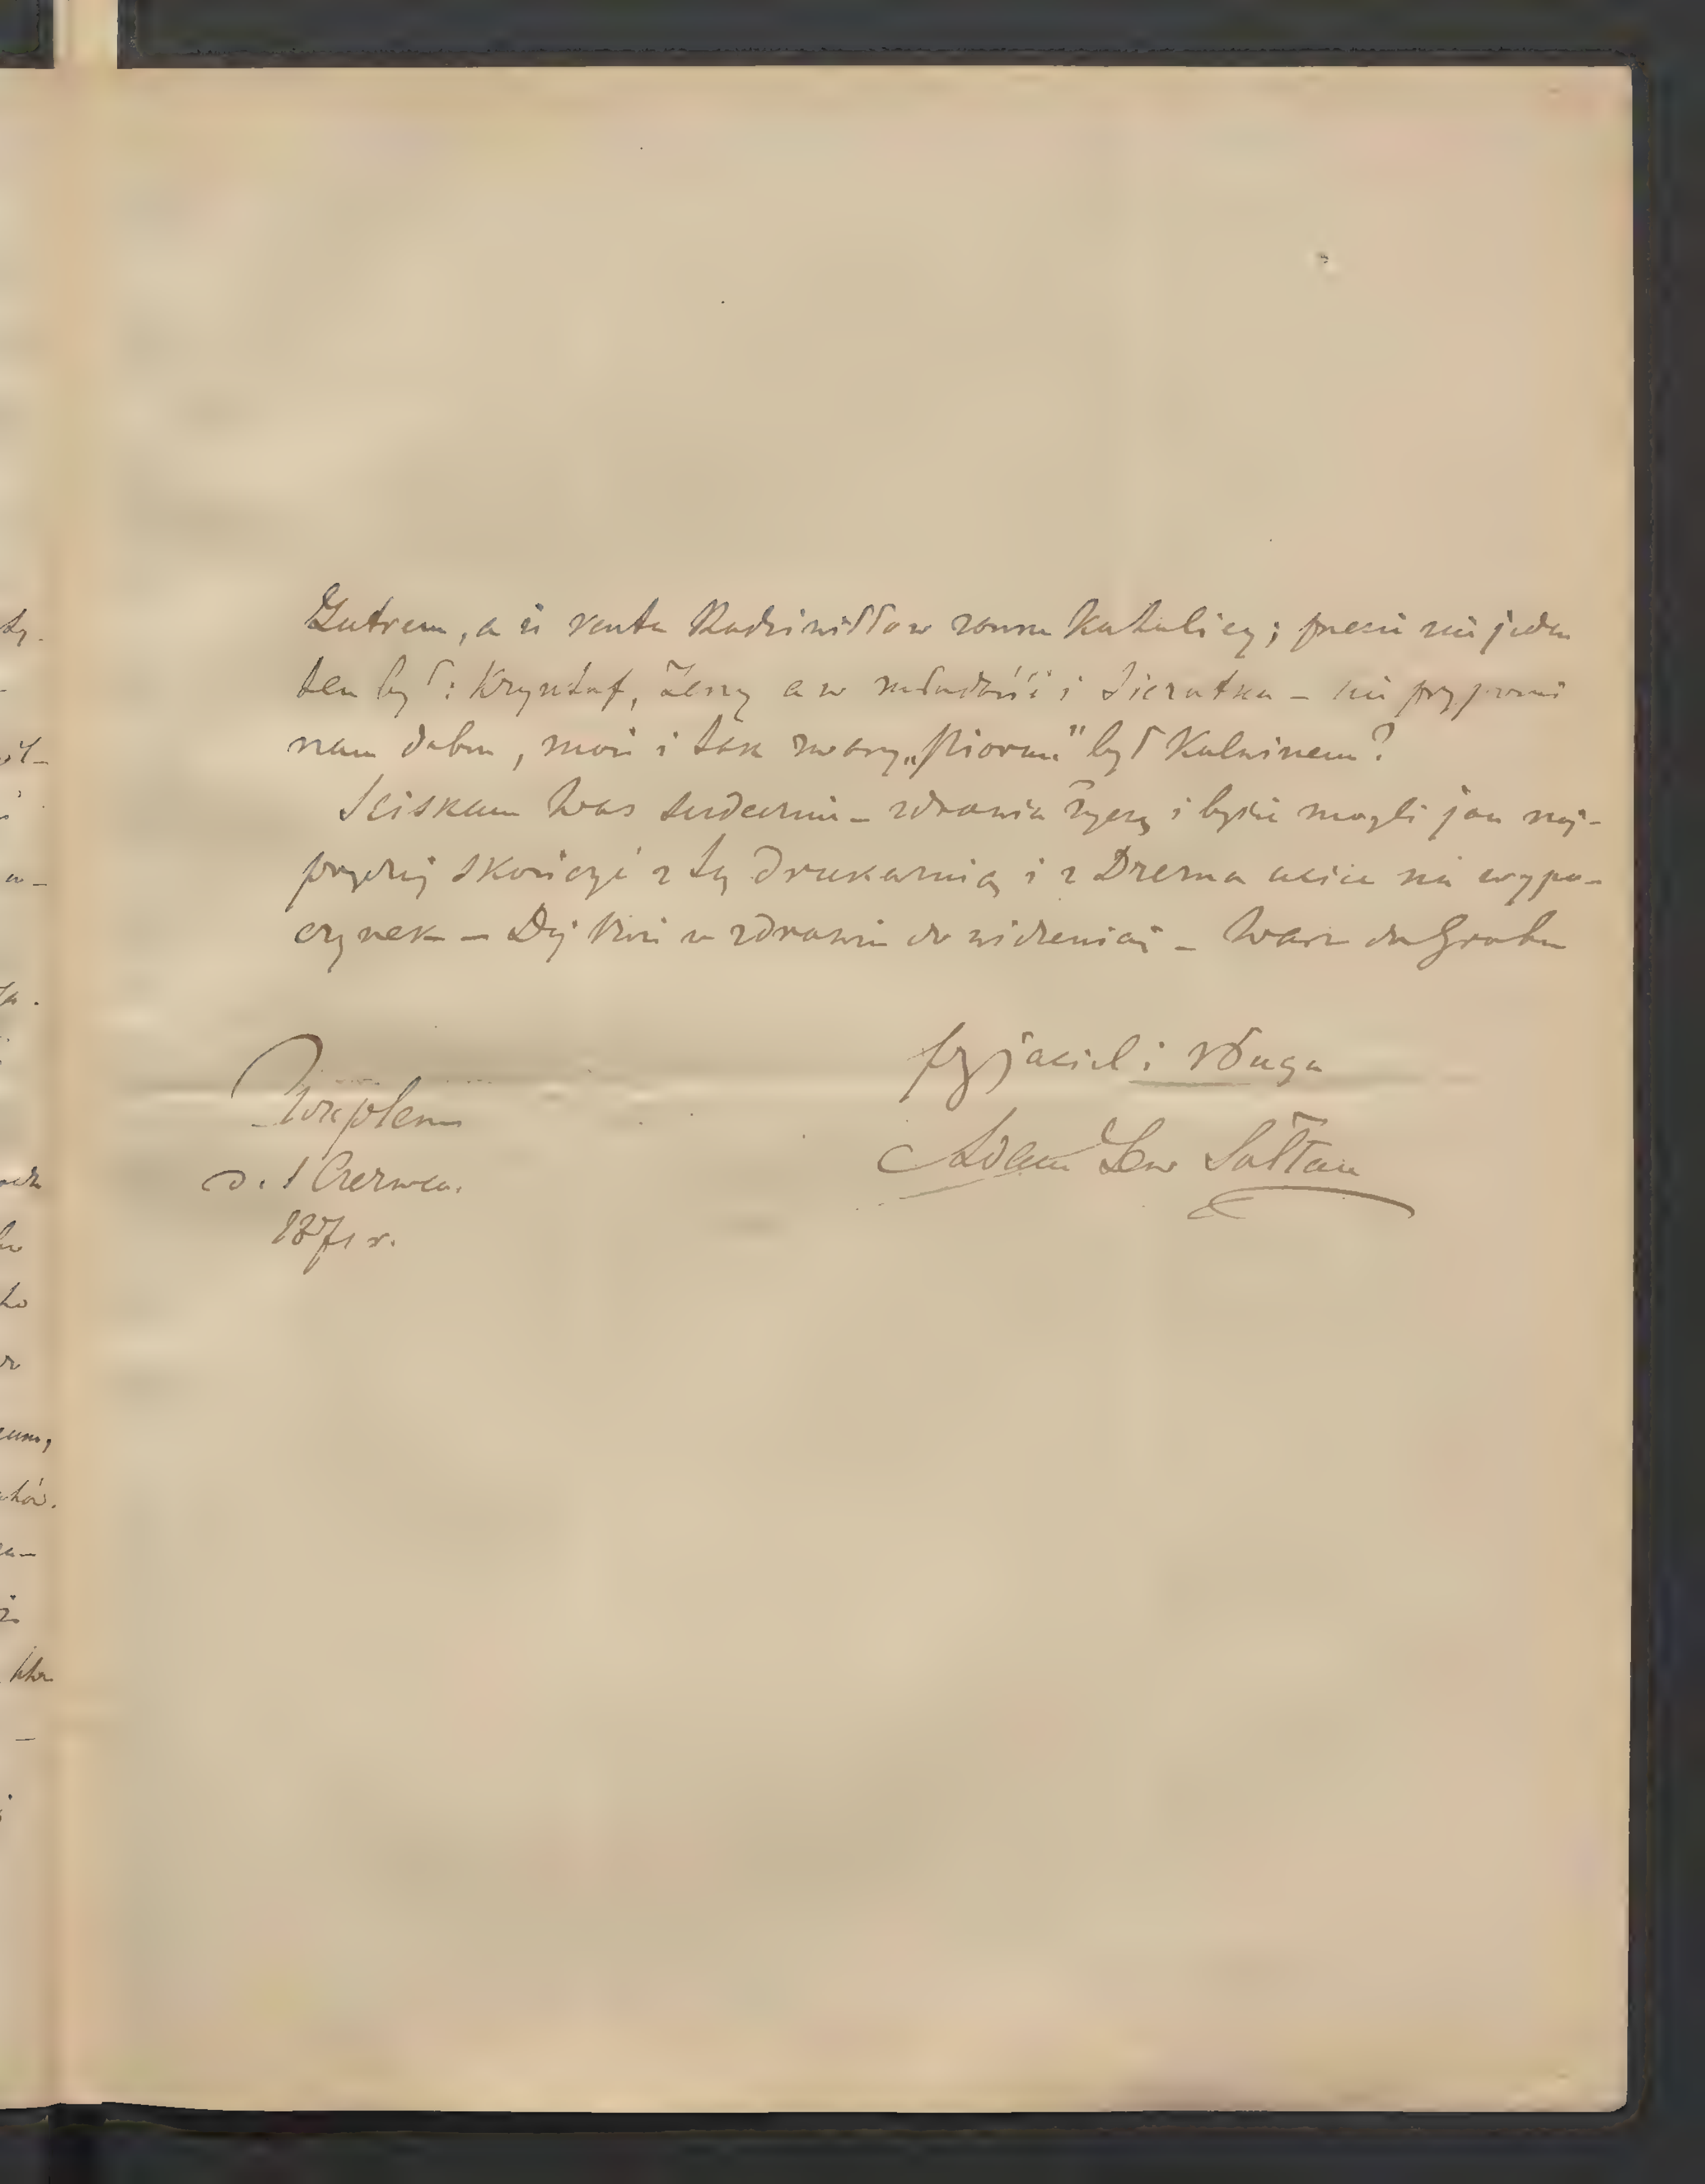 Lutrem, a iż reszta Radziwiłłow sama Katolicy; przecie nie jeden
ten był: Krzysztof, Jerzy a w młodości i Sierotka – nie przypomi
nam dobrze, może i tak zwany „Piorun" był Kalwinem?
Sciskam Was serdecznie – zdrowia życzę i byście mogli jak naj-
prędzej skończyć z tą drukarnią i z Drezna uciec na wypo-
czynek – Daj Boże w zdrowiu do widzenia – Wasz do Grobu
przyjaciel i sługa
Adam Lew Sołtan
d. 1 Czerwca.
1871 r.